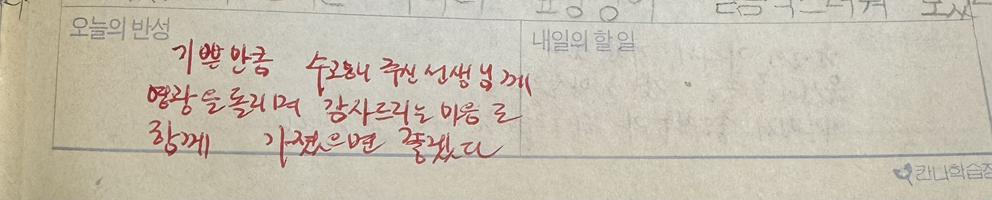 오늘의 반성
내일의 할 일
기쁜 만큼 수고해 주신 선생님께
영광을 돌리며 감사드리는 마음 도
함께 가졌으면 좋겠다
칸나학습장